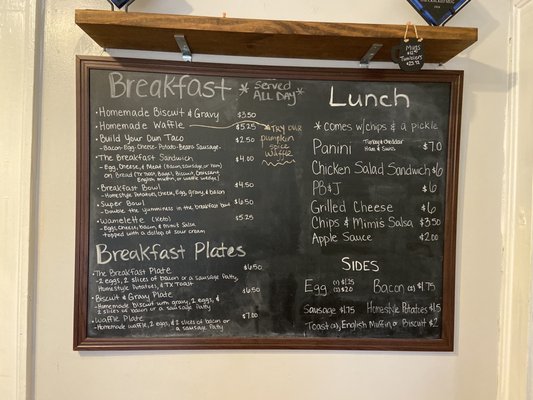 Mugs
Tumblers
Breakfast * served
ALL DAY *
• Homemade Biscuit & Gravy $3.50
• Homemade Waffle $5.25
TRY OUR
pumpkin
spice
Waffle
• Build Your Own Taco $2.50
- Bacon-Egg-Cheese-Potato-Beans-Sausage
• The Breakfast Sandwich $4.00
- Egg, Cheese, & Meat (Bacon, Sausage, or Ham)
on Bread (TX Toast, Bagel, Biscuit, Croissant,
English muffin, or waffle wedge)
• Breakfast Bowl $4.50
- Homestyle Potatoes, Cheese, Egg, Gravy, & Bacon
• Super Bowl $6.50
- Double the yumminess in the breakfast bowl
• Wamelette (Keto) $5.25
- Eggs, Cheese, bacon, & Mimi's Salsa
topped with a dollop of sour cream
Breakfast Plates
• The Breakfast Plate $6.50
- 2 eggs, 2 slices of bacon or a sausage patty,
Homestyle Potatoes, & TX Toast
• Biscuit & Gravy Plate $6.50
- Homemade Biscuit with gravy, 2 eggs, &
2 slices of bacon or a sausage patty
• Waffle Plate $7.00
- Homemade waffle, 2 eggs, & 2 slices of bacon or
a sausage patty
Lunch
* comes w/chips & a pickle
Panini Turkey & Cheddar
Ham & Swiss $7.0
Chicken Salad Sandwich $6
PB&J $6
Grilled Cheese $6
Chips & Mimi's Salsa $3.50
Apple Sauce $2.00
SIDES
Egg (1) $1.25
(2) $2.00
Bacon (2) $4.75
Sausage $1.75 Homestyle Potatoes $1.5
Toast (2), English Muffin, or Biscuit $2